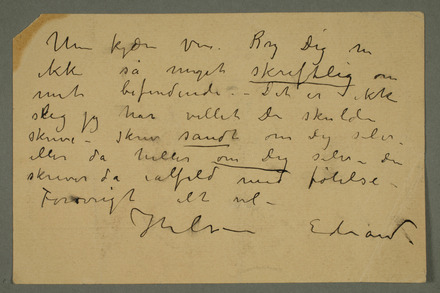 Min kjære Ven. Bry Dig nu
ikke så meget skriftlig om
mit befindende. – Det er ikke
slig jeg har villet Du skulde
skrive – skriv sandt om dig selv –
eller da heller om Dig selv – du
skriver da ialfald med følelse –
Forøvrigt alt vel –
Hilsen Edvard.